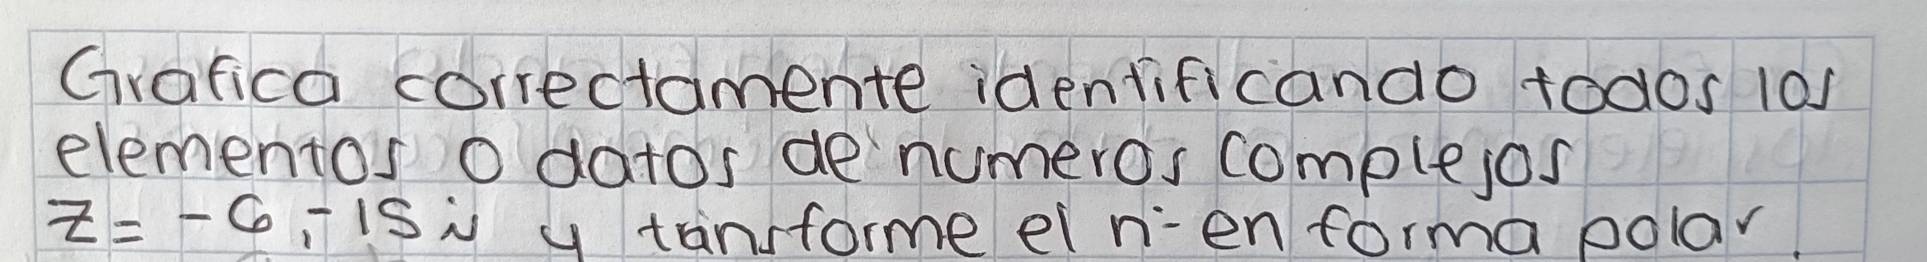 Grafica correctamente identificando todos los
elementos o datos de numeros complejos
z = -6, -15i y transforme el n- en forma polar.